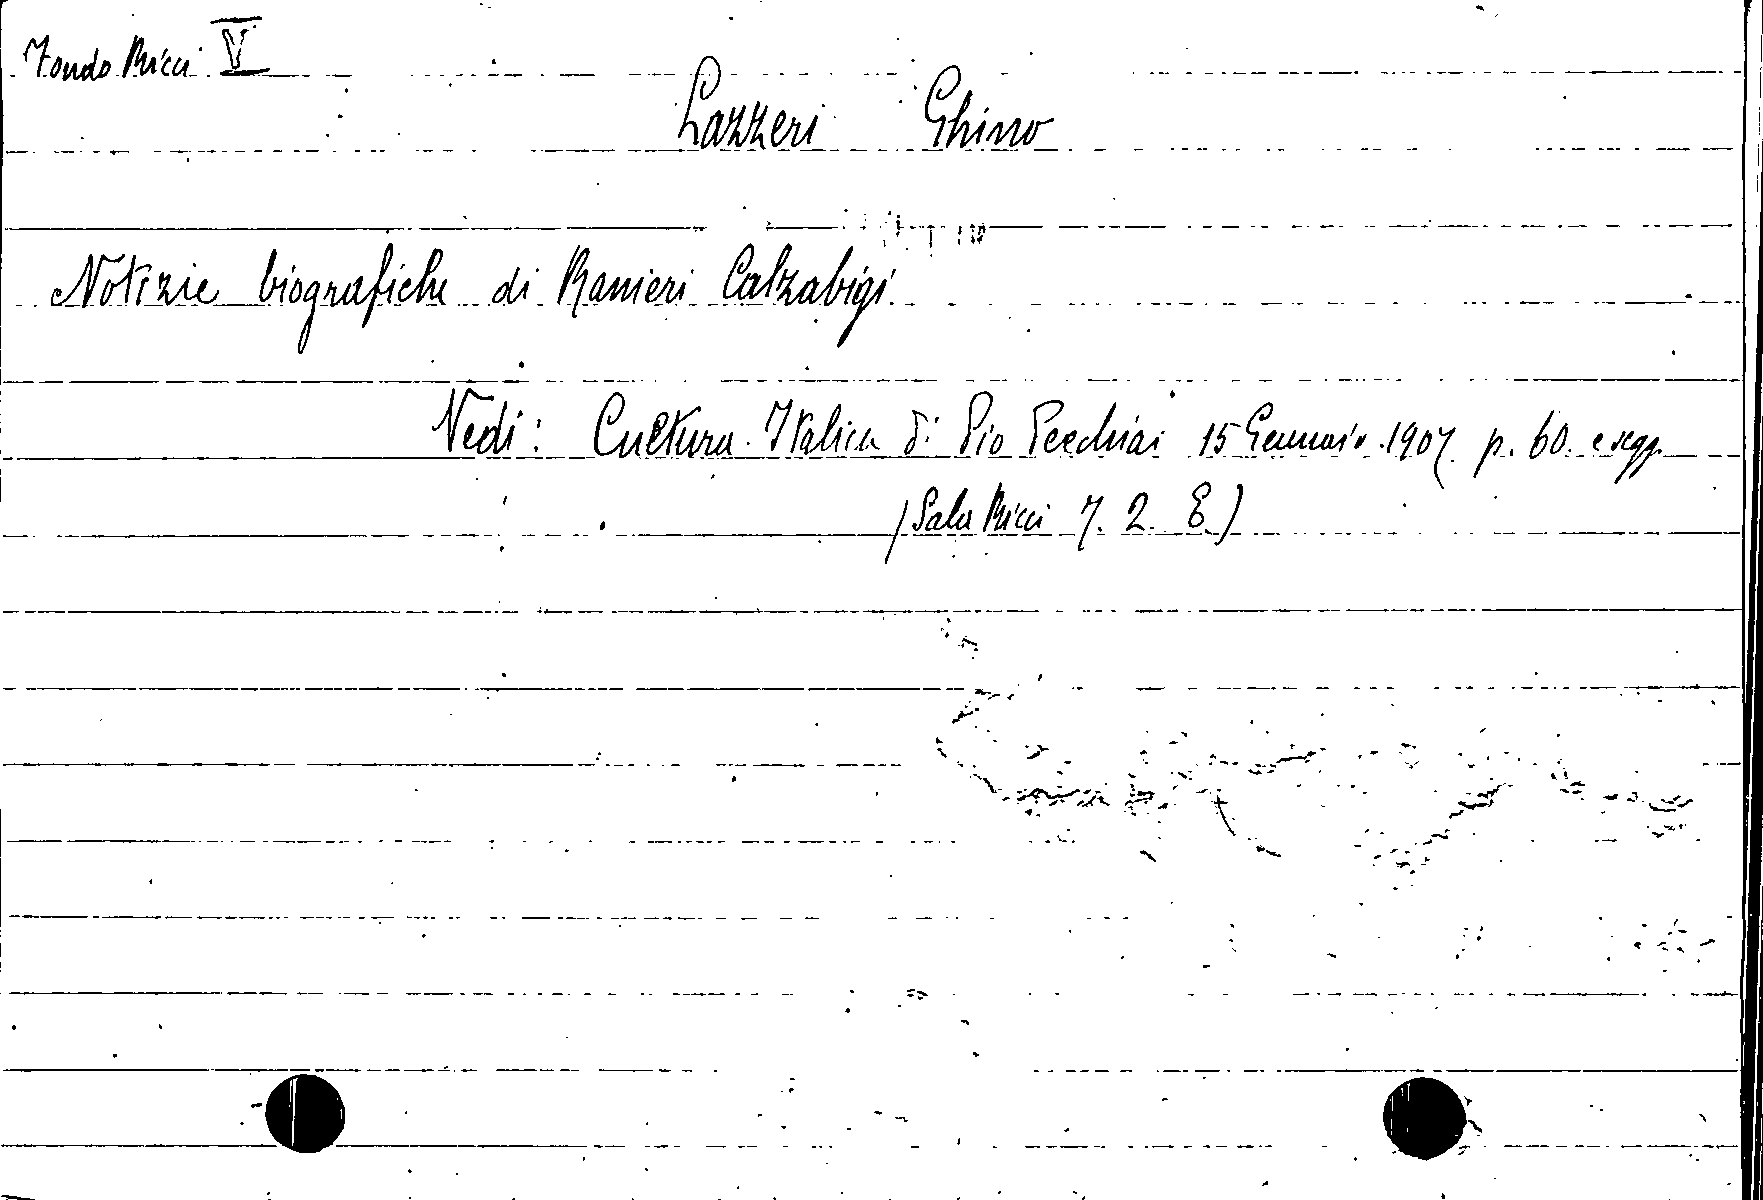 Fondo Ricci V
Lazzeri Ghino
Notizie biografiche di Ranieri Calzabigi.
Vedi: Cultura Italica di Pio Pecchiai 15 Gennaio 1907 p. 60. e segg.
(Sala Ricci 7. 2. E.)